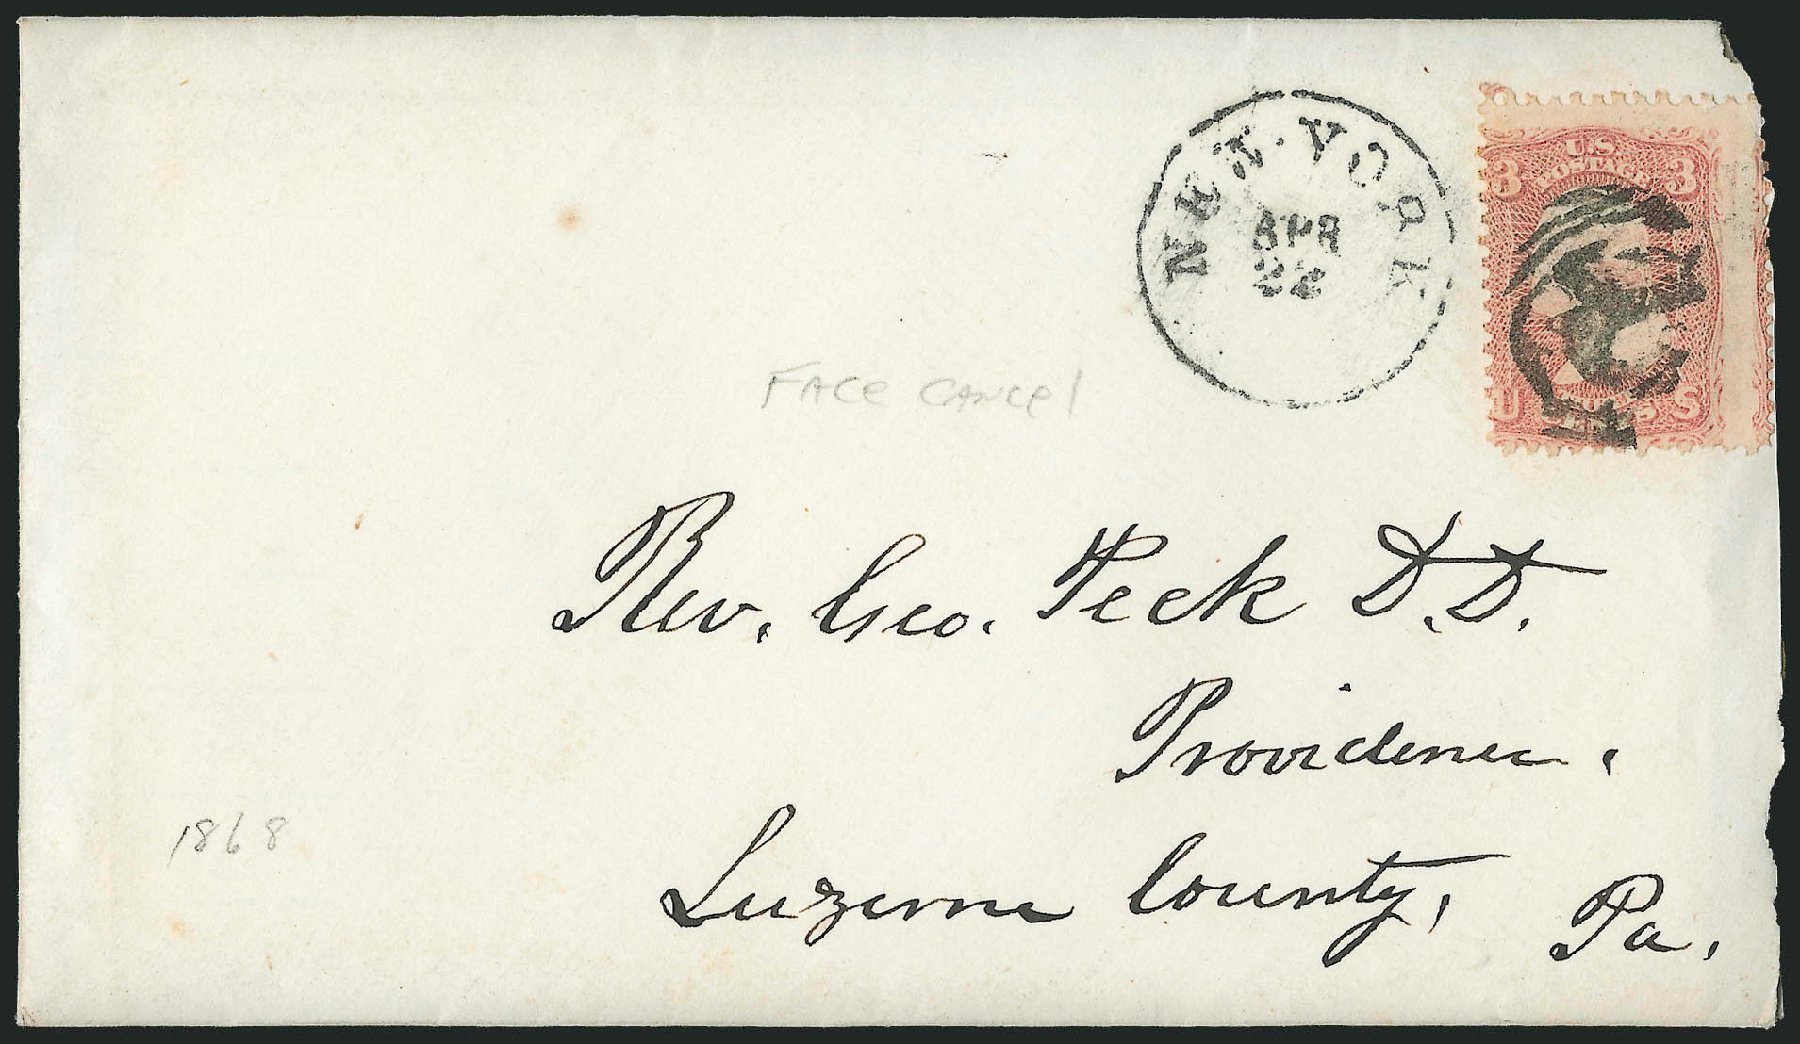 NEW-YORK
APR
22
U.S.
POSTAGE
3 3
U S
FACE CANCEL
Rev. Geo. Peck D.D.
Providence.
Luzerne County, Pa.
1868